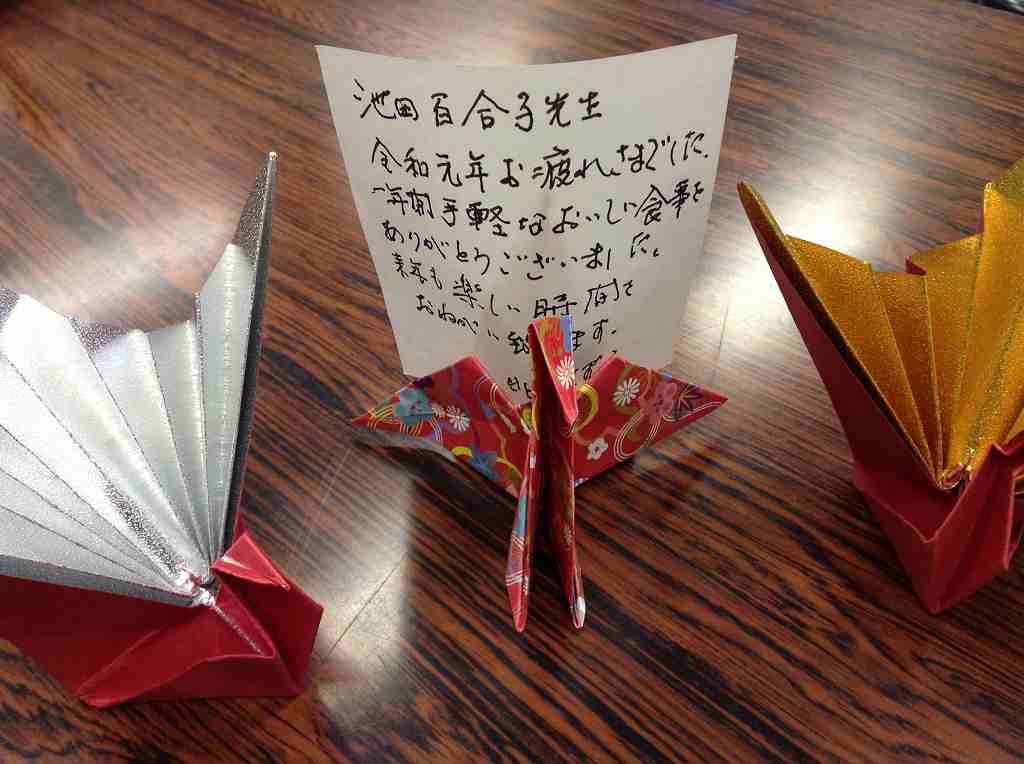 池田百合子先生
令和元年お疲れさまでした。
一年間手軽なおいしい食事を
ありがとうございました。
来年も楽しい時間を
おねがい致します。